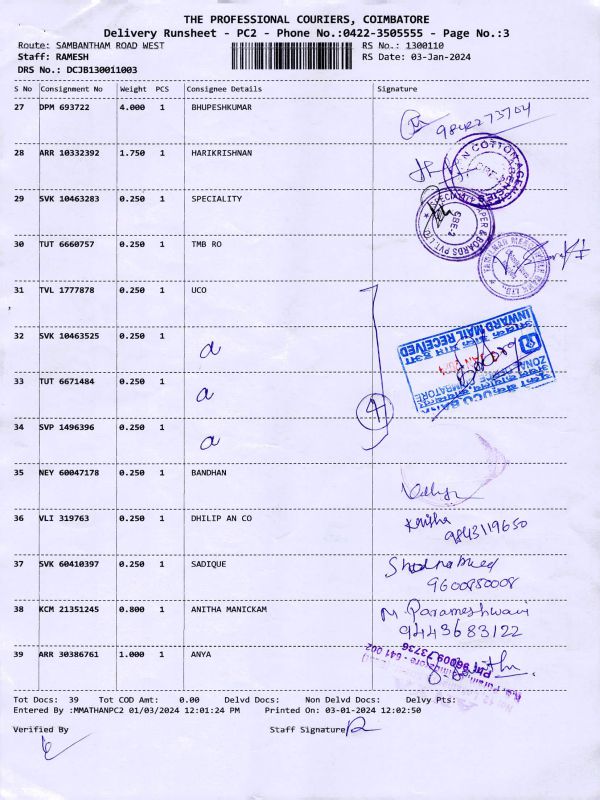 THE PROFESSIONAL COURIERS, COIMBATORE
Delivery Runsheet - PC2 - Phone No.:0422-3505555 - Page No.:3
Route: SAMBANTHAM ROAD WEST RS No.: 1300110
Staff: RAMESH RS Date: 03-Jan-2024
DRS No.: DCJB130011003
S No Consignment No Weight PCS Consignee Details Signature
27 DPM 693722 4.000 1 BHUPESHKUMAR
9842273704
28 ARR 10332392 1.750 1 HARIKRISHNAN
29 SVK 10463283 0.250 1 SPECIALITY
30 TUT 6660757 0.250 1 TMB RO
31 TVL 1777878 0.250 1 UCO
32 SVK 10463525 0.250 1 a
INWARD MAIL RECEIVED
33 TUT 6671484 0.250 1 a
4
34 SVP 1496396 0.250 1 a
35 NEY 60047178 0.250 1 BANDHAN
36 VLI 319763 0.250 1 DHILIP AN CO
9843119650
37 SVK 60410397 0.250 1 SADIQUE
9600880008
38 KCM 21351245 0.800 1 ANITHA MANICKAM M. Parameshwari
9443683122
39 ARR 30386761 1.000 1 ANYA
Tot Docs: 39 Tot COD Amt: 0.00 Delvd Docs: Non Delvd Docs: Delvy Pts:
Entered By :MMATHANPC2 01/03/2024 12:01:24 PM Printed On: 03-01-2024 12:02:50
Verified By Staff Signature